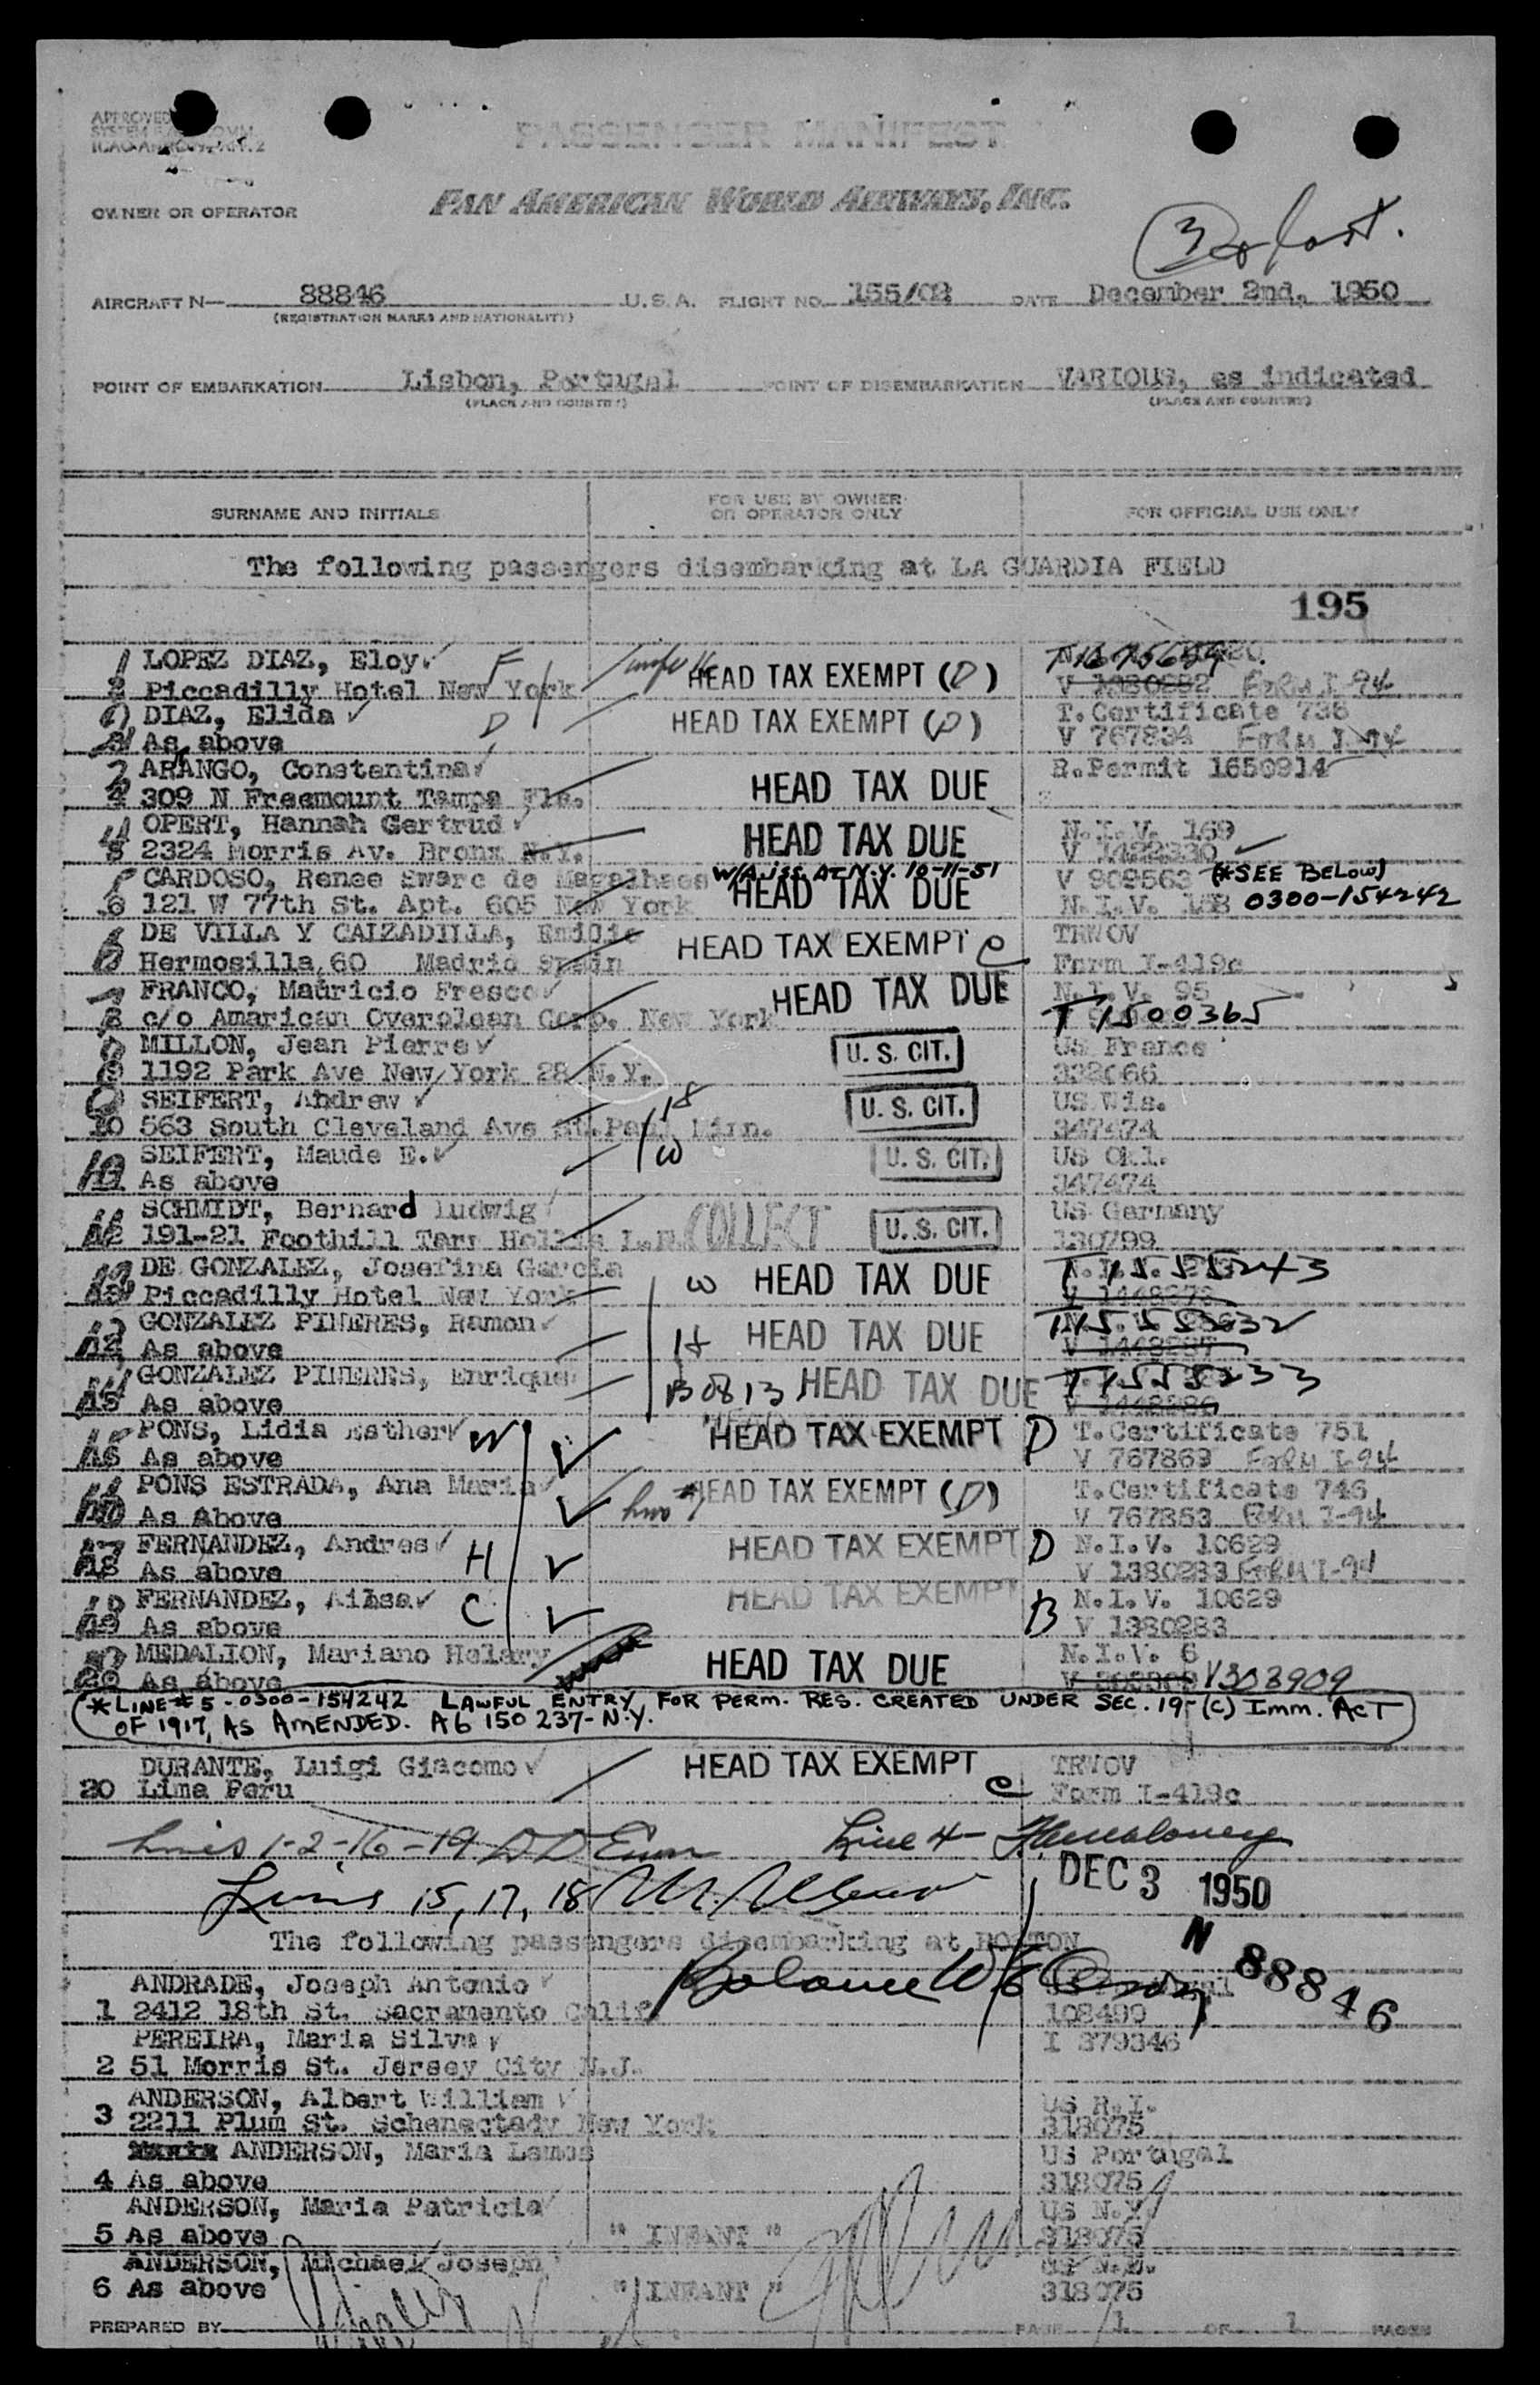 APPROVED
PASSENGER MANIFEST
OWNER OR OPERATOR PAN AMERICAN WORLD AIRWAYS, INC.
AIRCRAFT N— 88846 U.S.A. FLIGHT NO. 155/02 DATE December 2nd, 1950
(REGISTRATION MARKS AND NATIONALITY)
POINT OF EMBARKATION Lisbon, Portugal POINT OF DISEMBARKATION VARIOUS, as indicated
(PLACE AND COUNTRY) (PLACE AND COUNTRY)
SURNAME AND INITIALS FOR USE BY OWNER OR OPERATOR ONLY FOR OFFICIAL USE ONLY
The following passengers disembarking at LA GUARDIA FIELD
195
1 LOPEZ DIAZ, Eloy F
2 Piccadilly Hotel New York HEAD TAX EXEMPT (D) Form I-94
DIAZ, Elida D HEAD TAX EXEMPT (D) T. Certificate 735
As above V 767834 Form I-94
ARANGO, Constantina HEAD TAX DUE R. Permit 1650914
4 309 N Freemount Tampa Fla.
OPERT, Hannah Gertrud HEAD TAX DUE N.I.V. 169
5 2324 Morris Av. Bronx N.Y. V 1422330
CARDOSO, Renee Swarc de Magalhaes W/A iss. At N.Y. 10-11-51 V 909563 (*SEE BELOW)
6 121 W 77th St. Apt. 605 New York HEAD TAX DUE N.I.V. 158 0300-154242
DE VILLA Y CALZADILLA, Emilio HEAD TAX EXEMPT C TRWOV
Hermosilla, 60 Madrid Spain Form I-419c
FRANCO, Mauricio Fresco HEAD TAX DUE N.I.V. 95
8 c/o Amarican Overolean Corp. New York T 1500365
MILLON, Jean Pierre U. S. CIT. US France
1192 Park Ave New York 28 N.Y. 332066
SEIFERT, Andrew U. S. CIT. US Wis.
10 563 South Cleveland Ave St. Paul Minn. 347474
SEIFERT, Maude E. W U. S. CIT. US Okl.
As above 347474
SCHMIDT, Bernard Ludwig US Germany
191-21 Foothill Terr Hollis L.I. COLLECT U. S. CIT. 130799
DE GONZALEZ, Josefina Garcia W HEAD TAX DUE T 1555243
Piccadilly Hotel New York
GONZALEZ PINERES, Ramon H HEAD TAX DUE
As above
GONZALEZ PINERES, Enrique HEAD TAX DUE T 1555233
As above
PONS, Lidia Esther W HEAD TAX EXEMPT D T. Certificate 751
As above V 767869 Form I-94
PONS ESTRADA, Ana Maria HEAD TAX EXEMPT (D) T. Certificate 746
As above V 767853 Form I-94
FERNANDEZ, Andres H HEAD TAX EXEMPT D N.I.V. 10629
As above V 1380283 Form I-94
FERNANDEZ, Ailsa C HEAD TAX EXEMPT B N.I.V. 10629
As above V 1380283
MEDALION, Mariano Helary HEAD TAX DUE N.I.V. 6
20 As above V303909
*LINE # 5 - 0300-154242 LAWFUL ENTRY FOR PERM. RES. CREATED UNDER SEC. 19-(C) IMM. ACT
OF 1917, AS AMENDED. A6 150 237-N.Y.
DURANTE, Luigi Giacomo HEAD TAX EXEMPT C TRWOV
20 Lima Peru Form I-419c
Lines 1-2-16-19 Line 4
DEC 3 1950
Lines 15, 17, 18
The following passengers disembarking at BOSTON
N 88846
ANDRADE, Joseph Antonio Balance
1 2412 18th St. Sacramento Calif 108499
PEREIRA, Maria Silva I 379346
2 51 Morris St. Jersey City N.J.
ANDERSON, Albert William US R.I.
3 2211 Plum St. Schenectady New York 318075
ANDERSON, Maria Lemos US Portugal
4 As above 318075
ANDERSON, Maria Patricia US N.Y.
5 As above " INFANT " 318075
ANDERSON, Michael Joseph
6 As above " INFANT " 318075
PREPARED BY PAGE 1 OF 1 PAGES